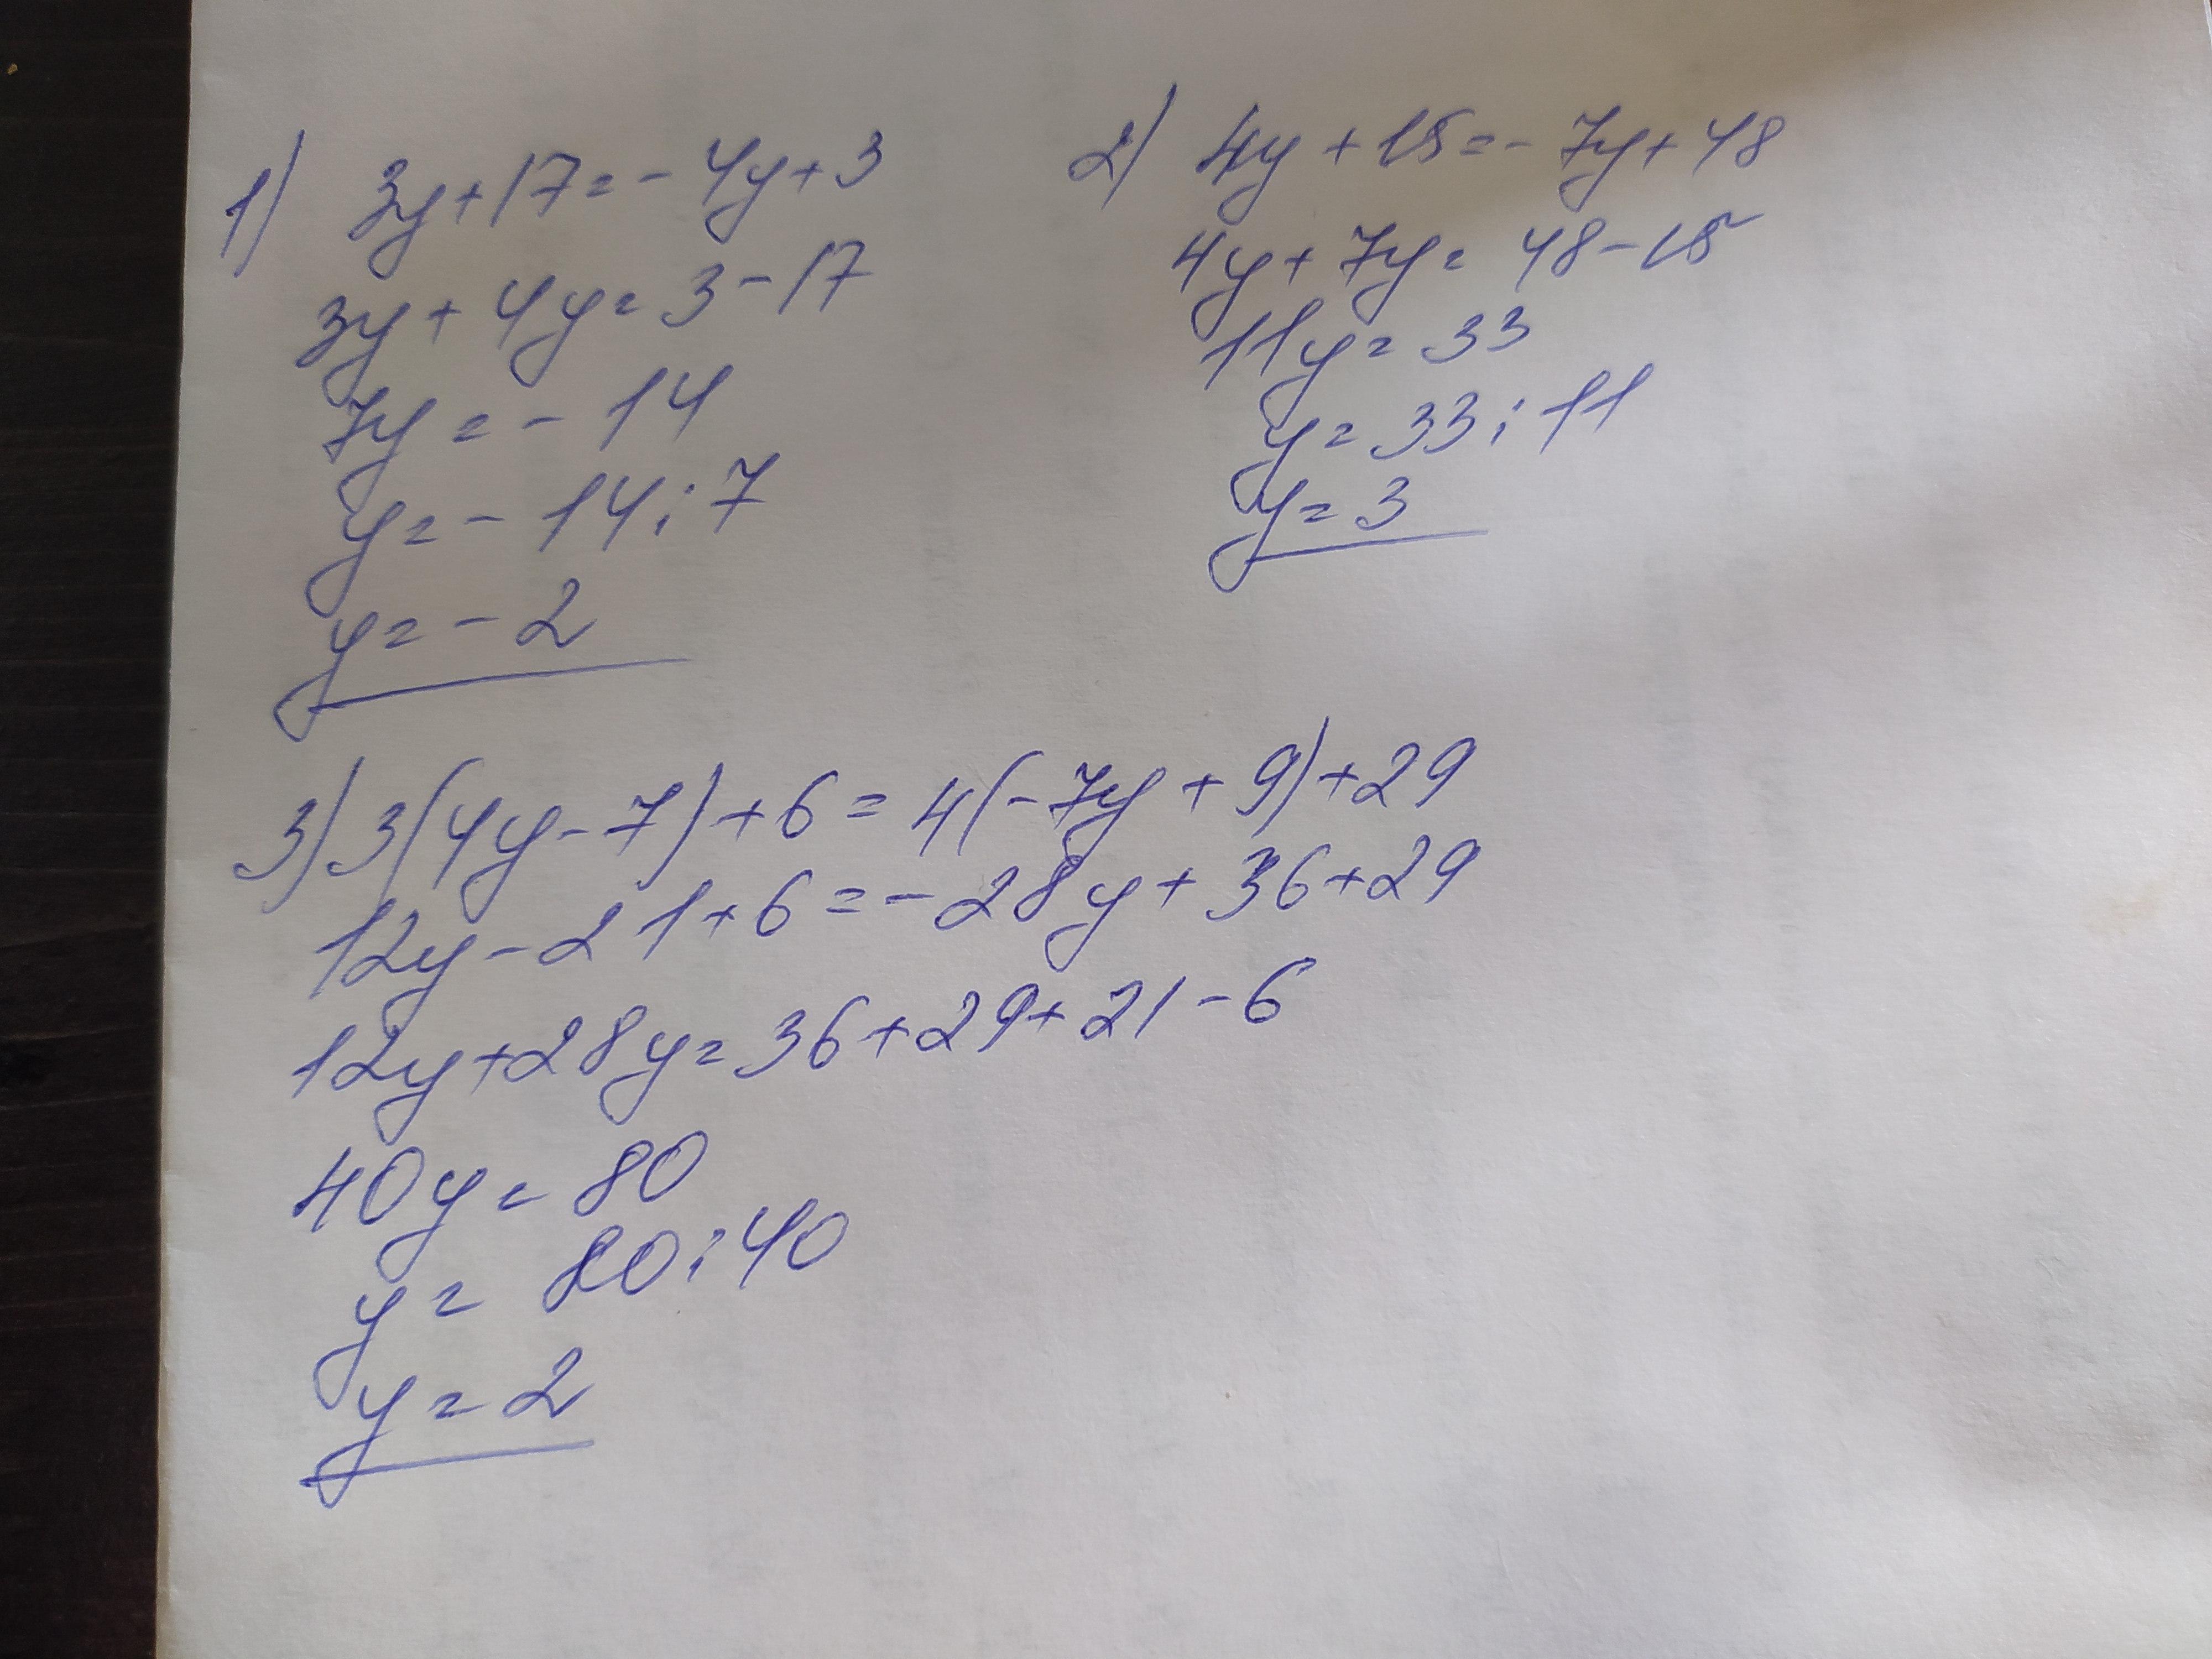 1) 3y+17=-4y+3
3y+4y=3-17
7y=-14
y=-14:7
y=-2
2) 4y+15=-7y+48
4y+7y=48-15
11y=33
y=33:11
y=3
3) 3(4y-7)+6=4(-7y+9)+29
12y-21+6=-28y+36+29
12y+28y=36+29+21-6
40y=80
y=80:40
y=2